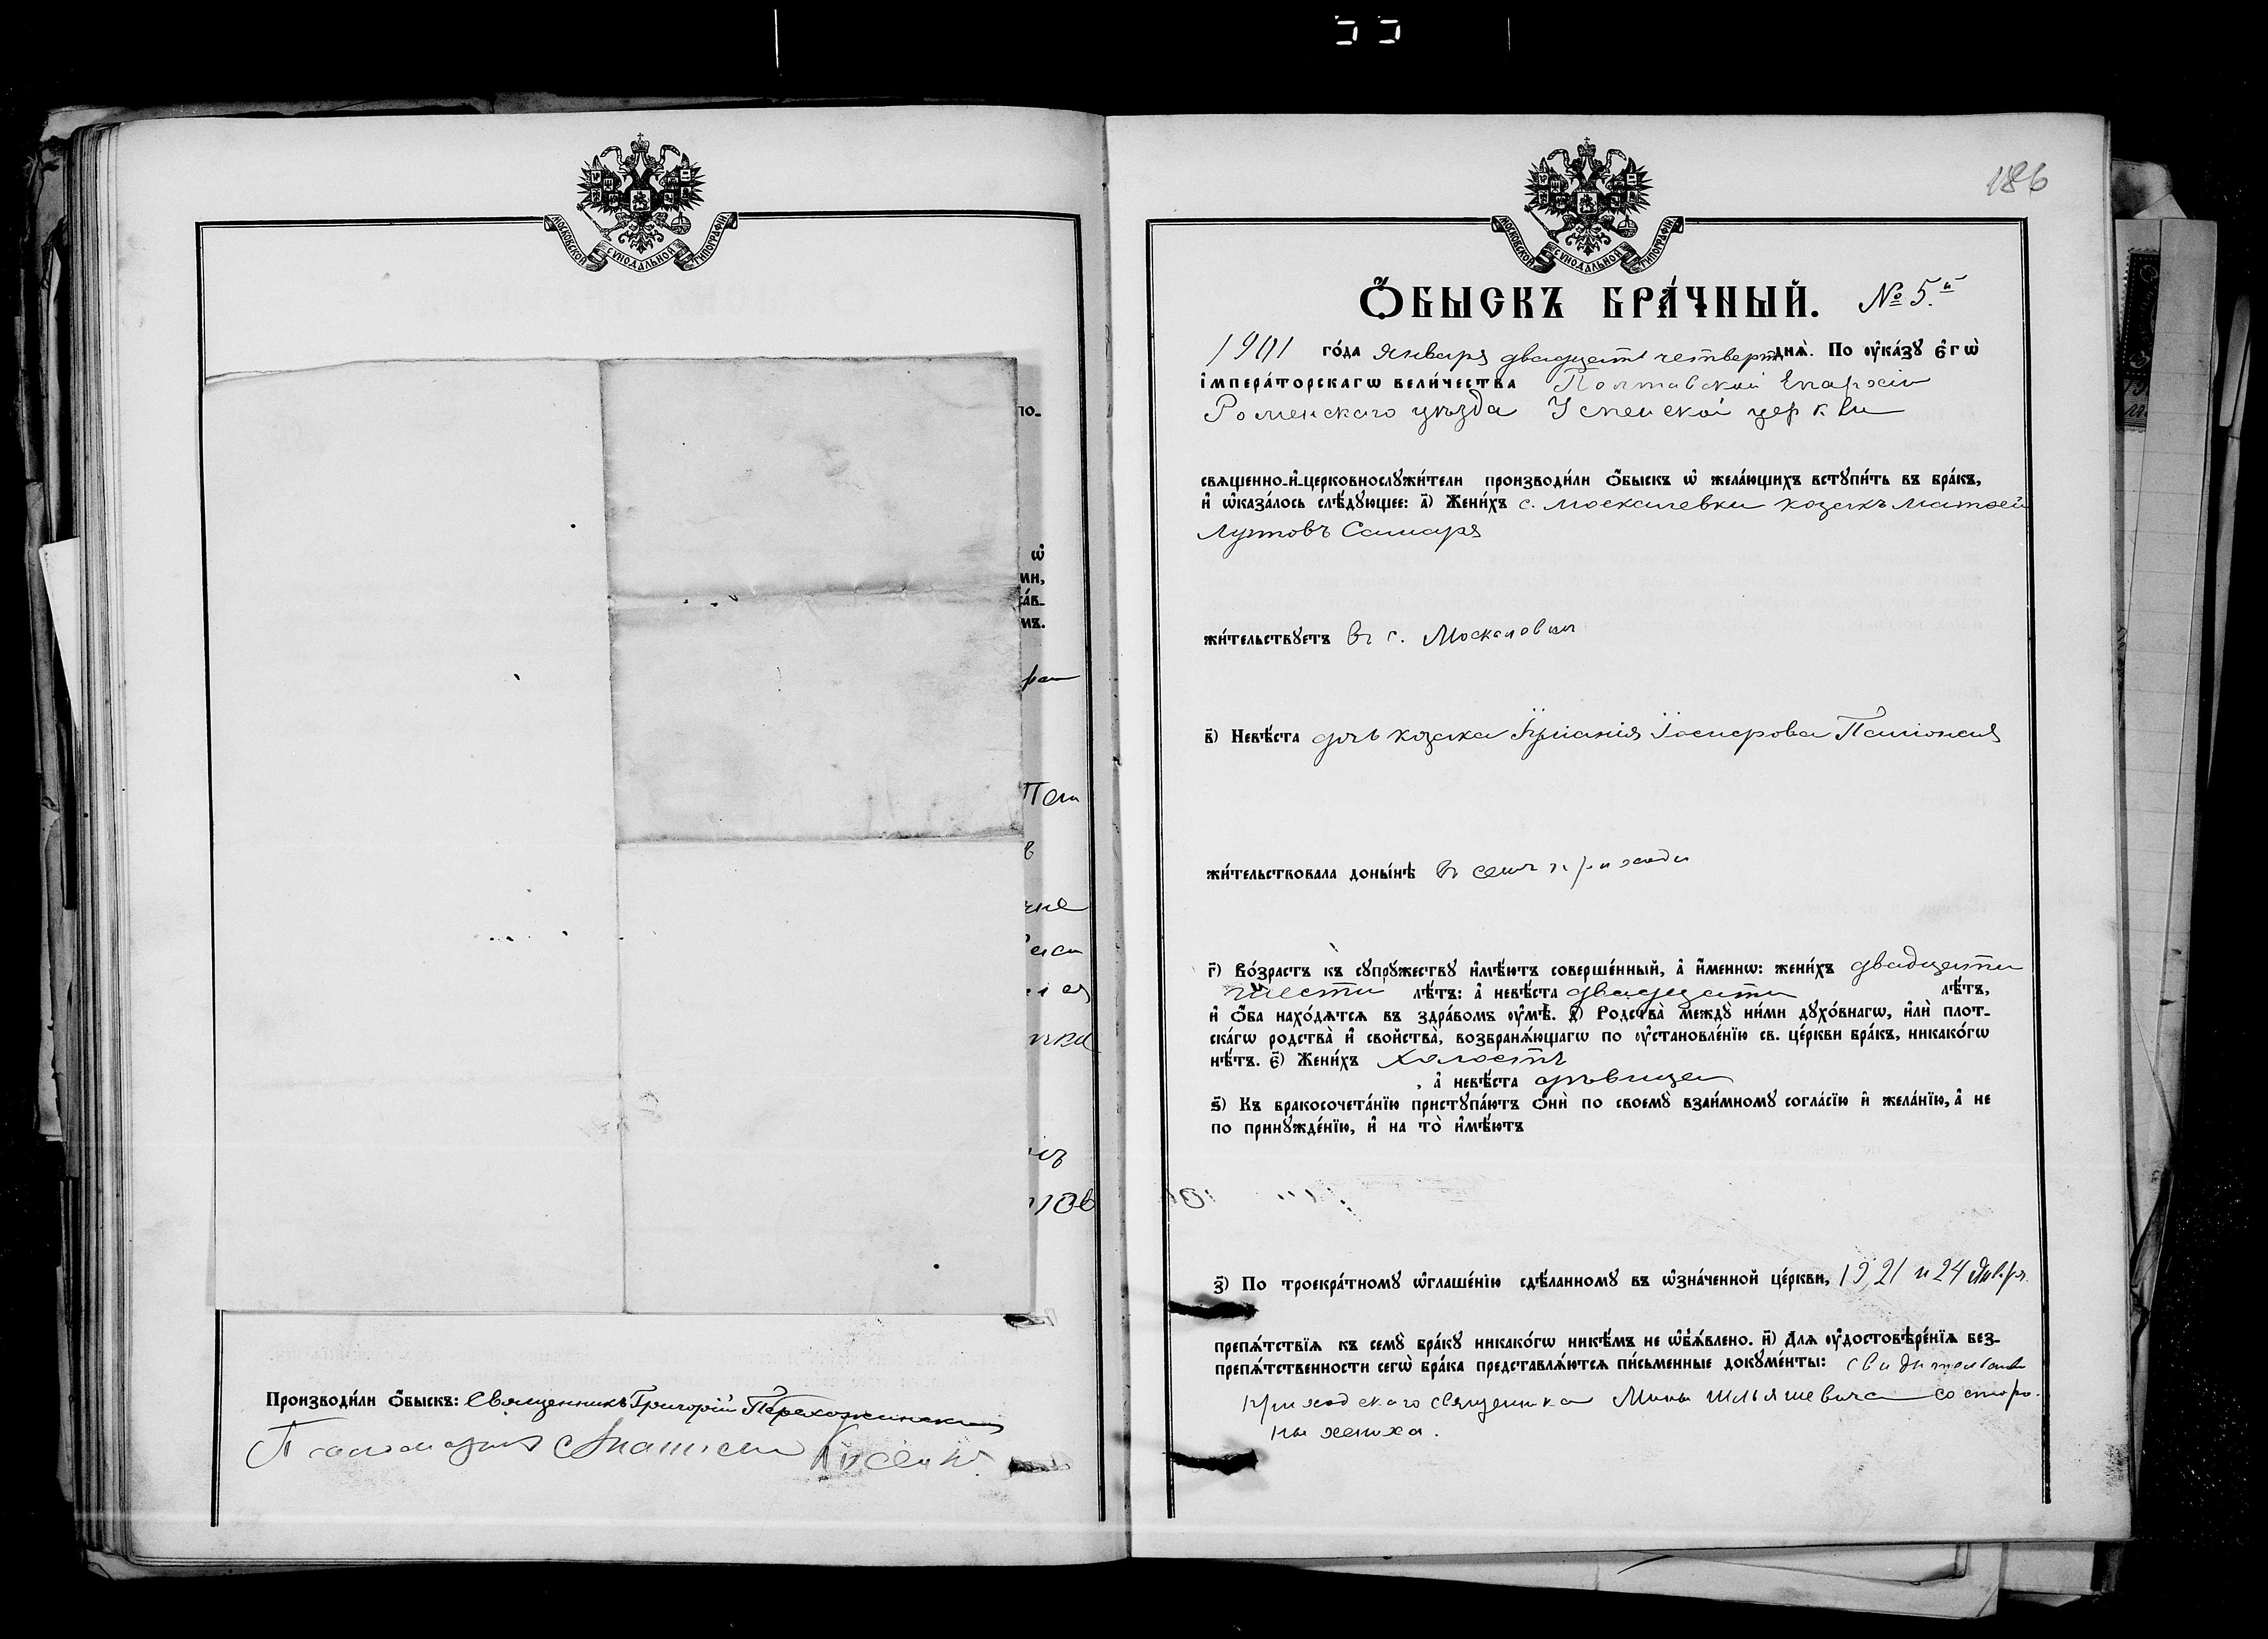 МОСКОВСКОЙ СѴНОДАЛЬНОЙ ТИПОГРАФІИ
по-
ѡ҆
ин,
а́в-
мъ.
Пам
Произво́дили ѻ҆́быскъ: Священникъ Григорій
МОСКОВСКОЙ СѴНОДАЛЬНОЙ ТИПОГРАФІИ
186
Ѻ҆́БЫСКЪ БРА́ЧНЫЙ. № 5.й
1901 го́да Января двадцать четверт дня̀. По ᲂу҆ка́зꙋ є҆гѡ̀
і҆мпера́торскагѡ вели́чества Полтавской Епархіи
Роменскаго уѣзда Успенской церкви
свѧщенно-и҆-церковнослꙋжи́тели производи́ли ѻ҆́быскъ ѡ҆ жела́ющихъ вступи́ть въ бра́къ,
и҆ ѡ҆каза́лось слѣ́дꙋющее: а҃) Жени́хъ с. Москалевки козакъ Матѳей
Луповъ Самаря
жи́тельствꙋетъ въ с. Москалевки
в҃) Невѣ́ста дочь козака
жи́тельствовала доны́нѣ въ семъ приходи
г҃) Во́зрастъ къ сꙋпрꙋ́жествꙋ и҆мѣ́ютъ соверше́нный, а҆ и҆́меннѡ: жени́хъ двадцати
шести лѣ́тъ: а҆ невѣ́ста двадцати лѣ́тъ,
и҆ ѻ҆́ба нахо́дѧтсѧ въ здра́вомъ ᲂу҆мѣ̀. д҃) Родства̀ междꙋ̀ ни́ми дꙋхо́внагѡ, и҆лѝ плот-
ска́гѡ родства̀ и҆ свойства̀, возбранѧ́ющагѡ по ᲂу҆становле́нїю св. це́ркви бра́къ, никако́гѡ
нѣ́тъ. є҃) Жени́хъ холостъ
, а҆ невѣ́ста дѣвица
ѕ҃) Къ бракосочета́нїю пристꙋпа́ютъ ѻ҆нѝ по своемꙋ̀ взаи́мномꙋ согла́сїю и҆ жела́нїю, а҆ не
по принꙋжде́нїю, и҆ на то̀ и҆мѣ́ютъ
з҃) По троекра́тномꙋ ѡ҆глаше́нїю сдѣ́ланномꙋ въ ѡ҆зна́ченной це́ркви, 19, 21 и 24 Января
препѧ́тствїѧ къ семꙋ̀ бра́кꙋ никако́гѡ никѣ́мъ не ѡ҆б̾ѧ́влено. и҃) Для ᲂу҆достовѣре́нїѧ без-
препѧ́тственности сегѡ̀ бра́ка представлѧ́ютсѧ пи́сьменные докꙋме́нты: свидительство
приходскаго священника Мины Ильяшевича со сторо-
ны жениха.